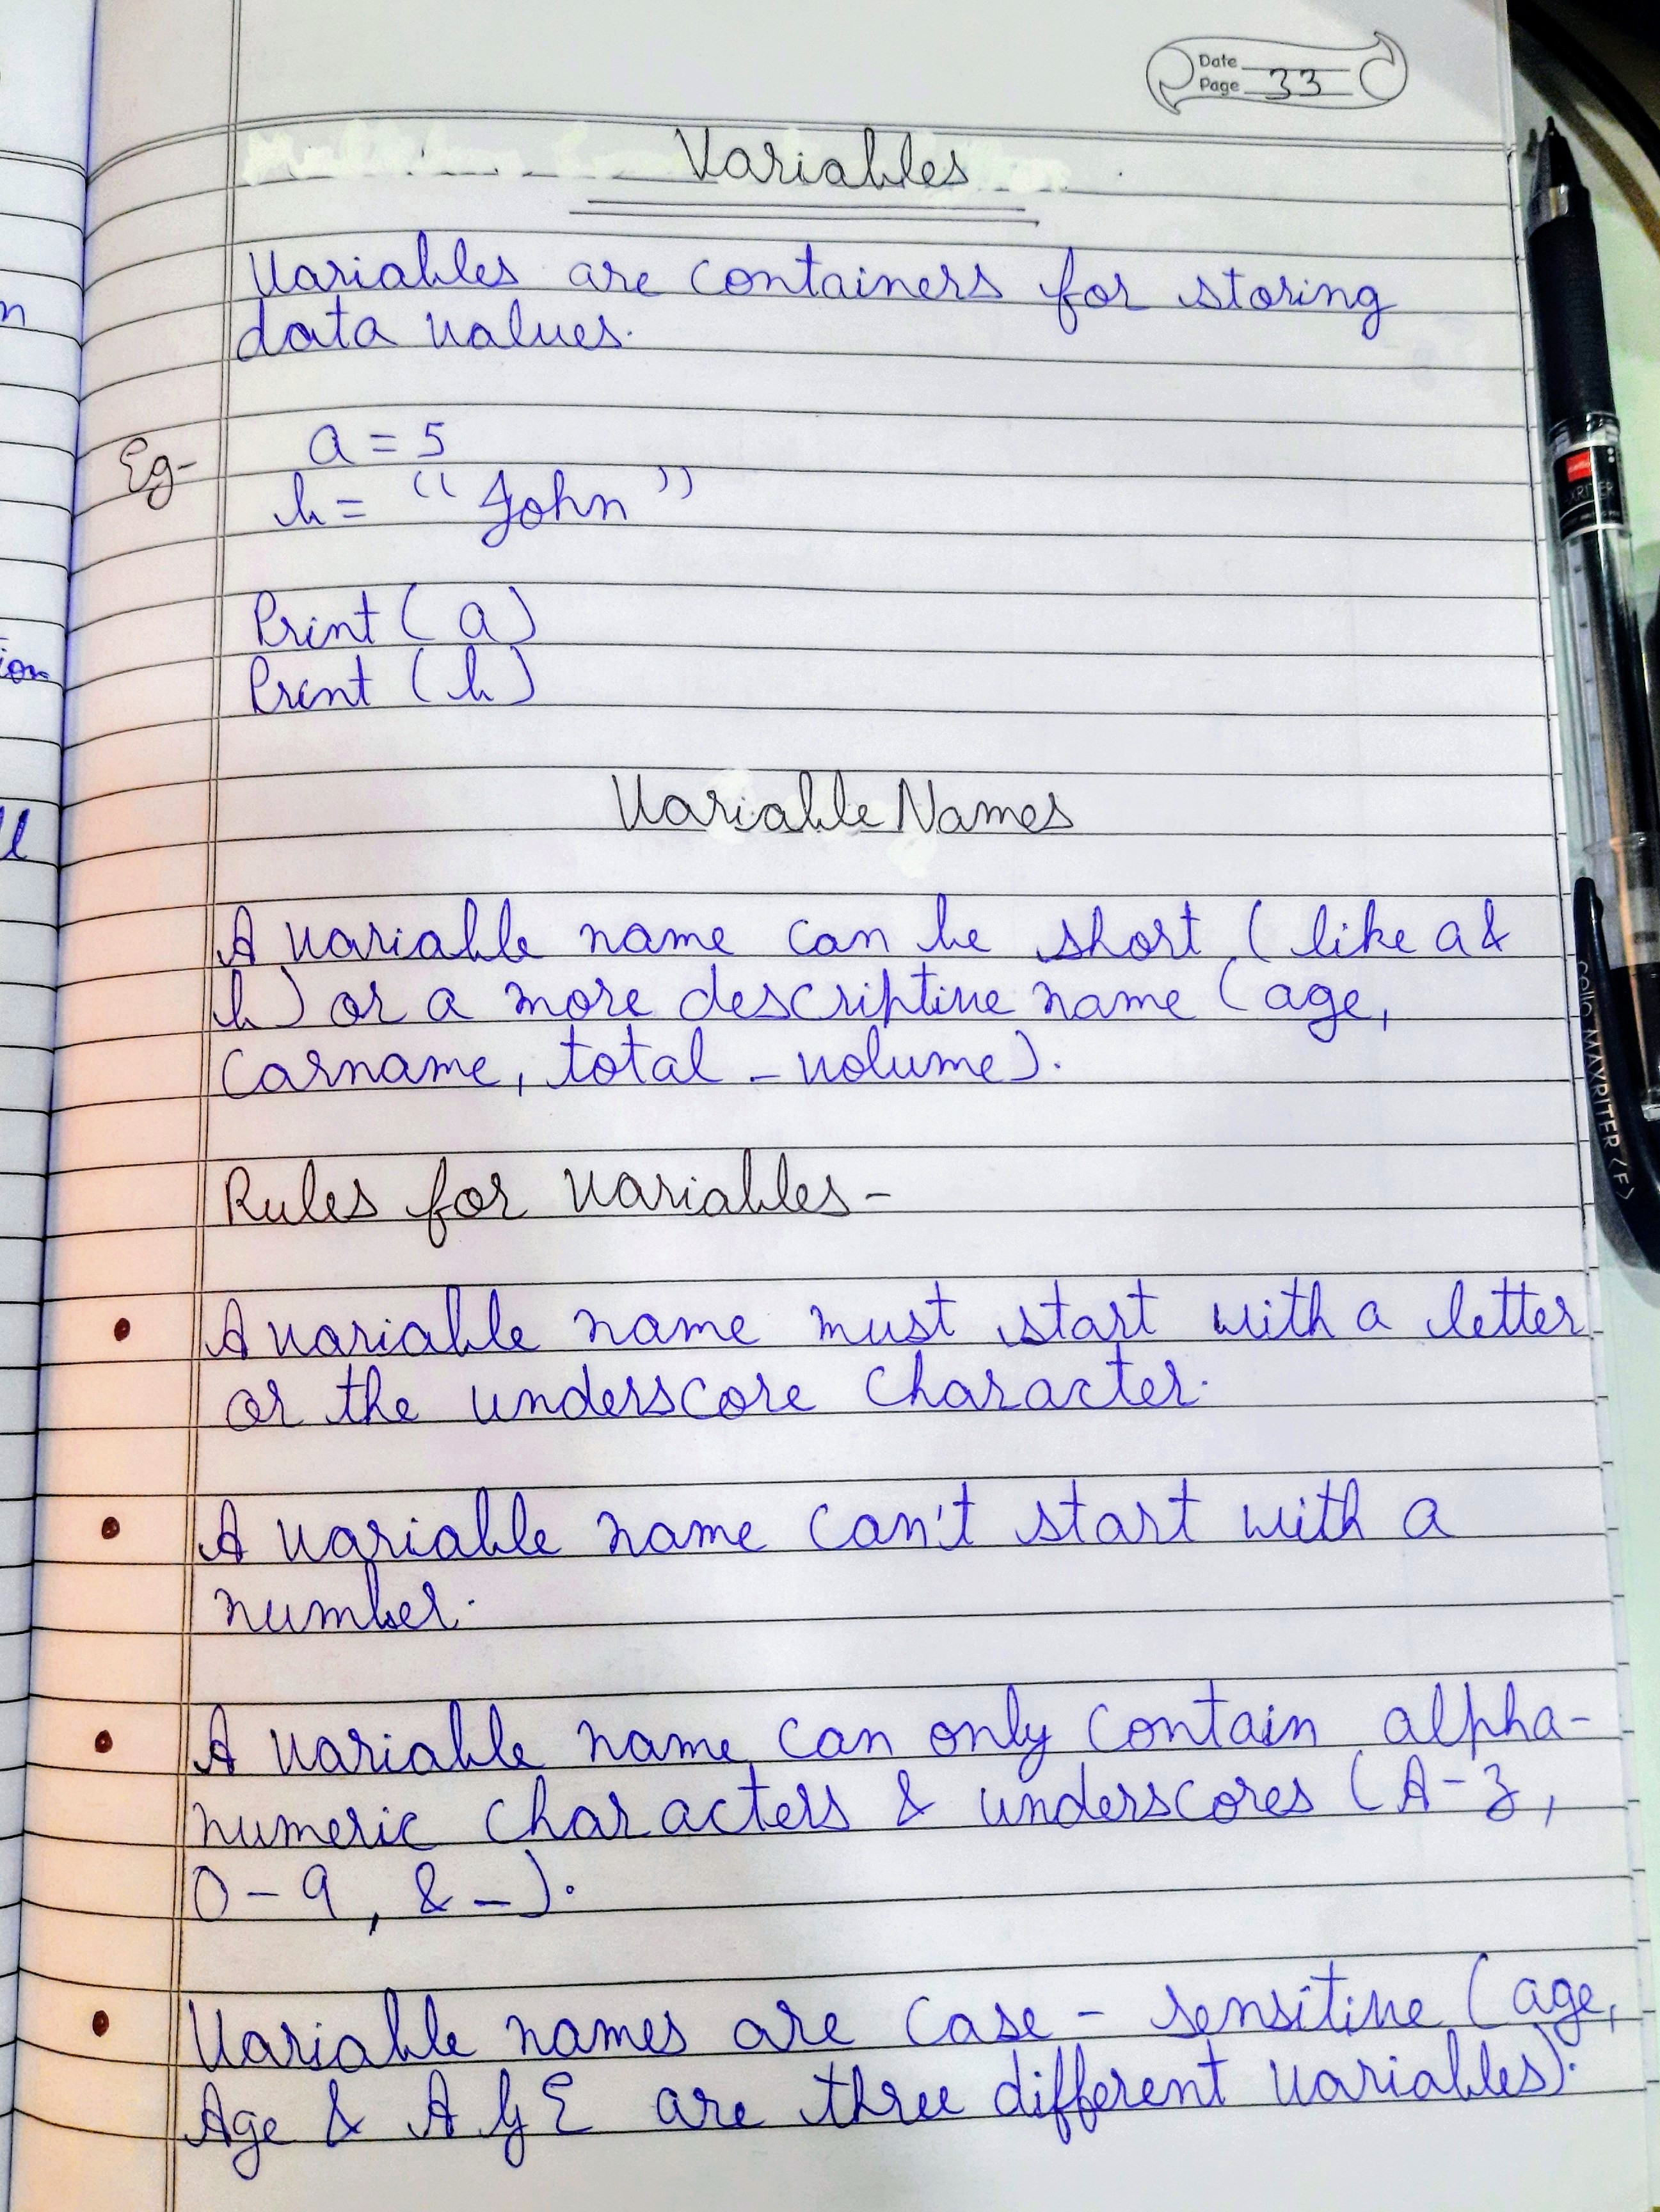 Date
Page 33
Variables
Variables are containers for storing
data values.
Eg- a = 5
b = "John"
Print (a)
Print (b)
Variable Names
A variable name can be short (like a &
b) or a more descriptive name (age,
carname, total _ volume).
Rules for variables -
• A variable name must start with a letter
or the underscore character.
• A variable name can't start with a
number.
• A variable name can only contain alpha-
numeric characters & underscores (A-z,
0-9, & _).
• Variable names are case - sensitive (age,
Age & AGE are three different variables).
n
ion
ll
cello MAXRITER <F>